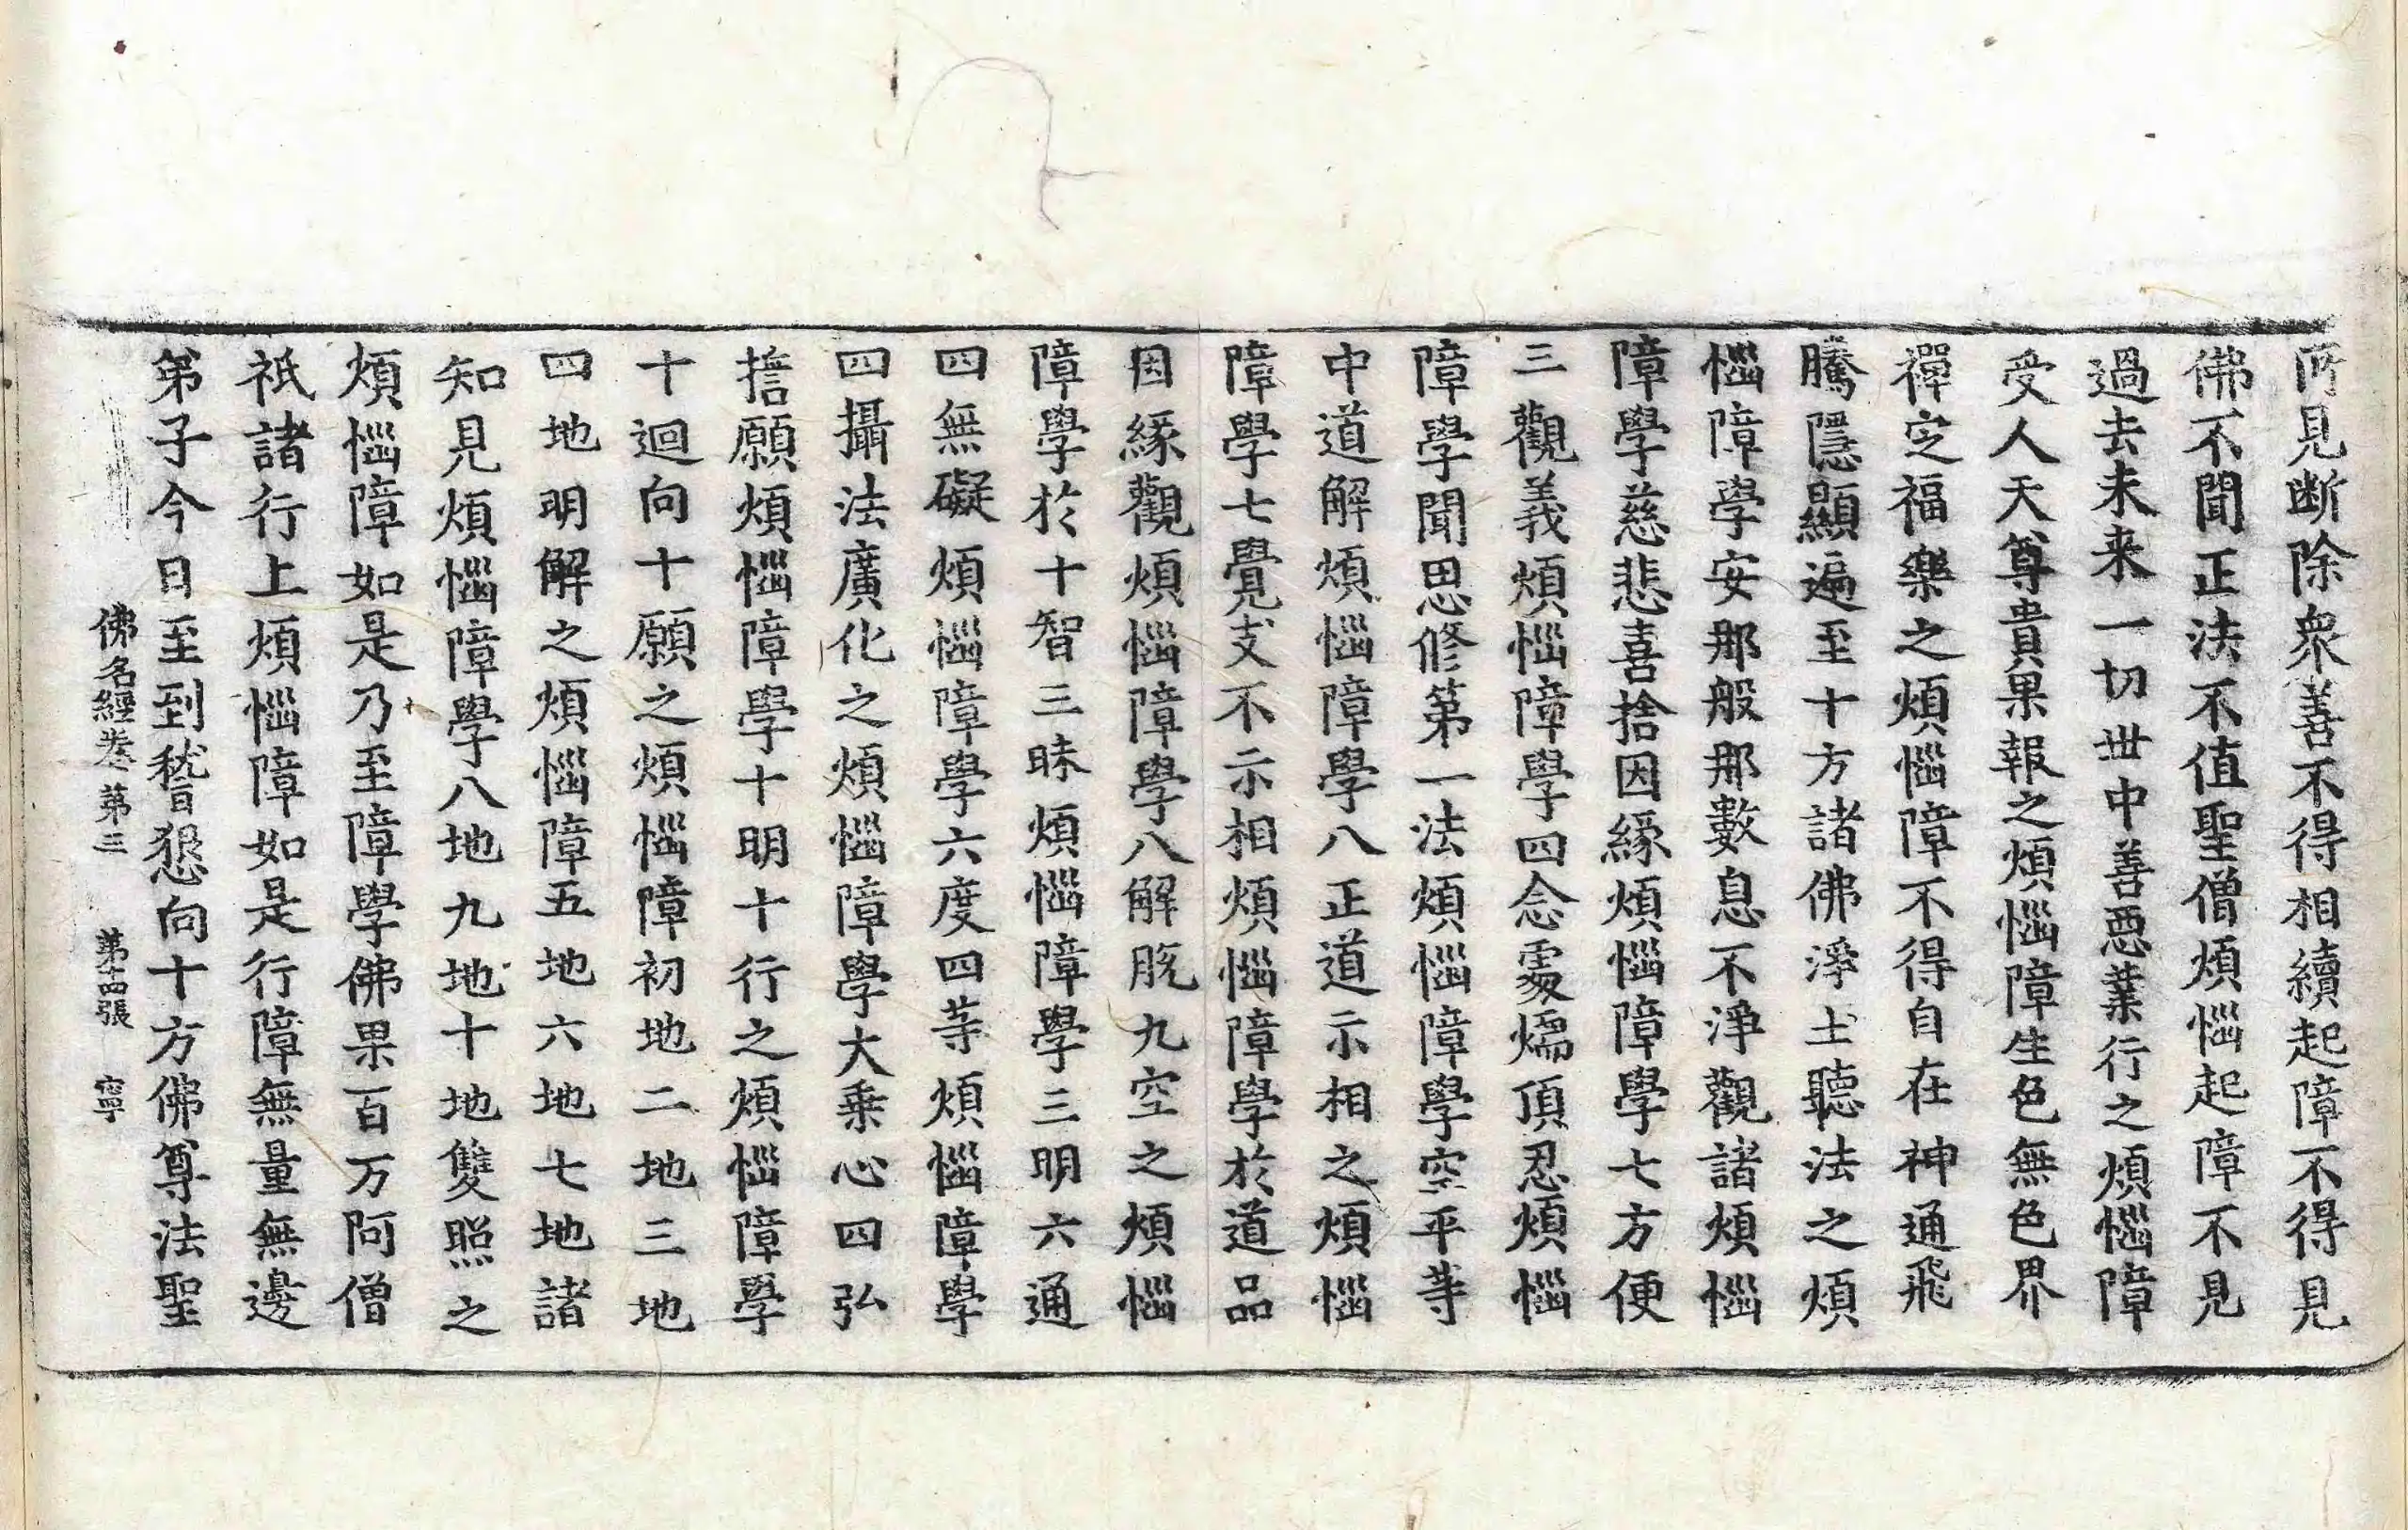 所見断除衆善不得相續起障不得見
佛不聞正法不值聖僧煩惱起障不見
過去未来一切世中善惡業行之煩惱障
受人天尊貴果報之煩惱障生色無色界
禪定福樂之煩惱障不得自在神通飛
騰隱顯遍至十方諸佛淨土聽法之煩
惱障學安那般那數息不淨觀諸煩惱
障學慈悲喜捨因緣煩惱障學七方便
三觀義煩惱障學四念處煗頂忍煩惱
障學聞思修第一法煩惱障學空平等
中道解煩惱障學八正道示相之煩惱
障學七覺支不示相煩惱障學於道品
因緣觀煩惱障學八解脫九空之煩惱
障學於十智三昧煩惱障學三明六通
四無礙煩惱障學六度四等煩惱障學
四攝法廣化之煩惱障學大乗心四弘
誓願煩惱障學十明十行之煩惱障學
十迴向十願之煩惱障初地二地三地
四地明解之煩惱障五地六地七地諸
知見煩惱障學八地九地十地雙照之
煩惱障如是乃至障學佛果百万阿僧
祇諸行上煩惱障如是行障無量無邊
弟子今日至到稽懇向十方佛尊法聖
佛名經卷第三 第十四張 寧